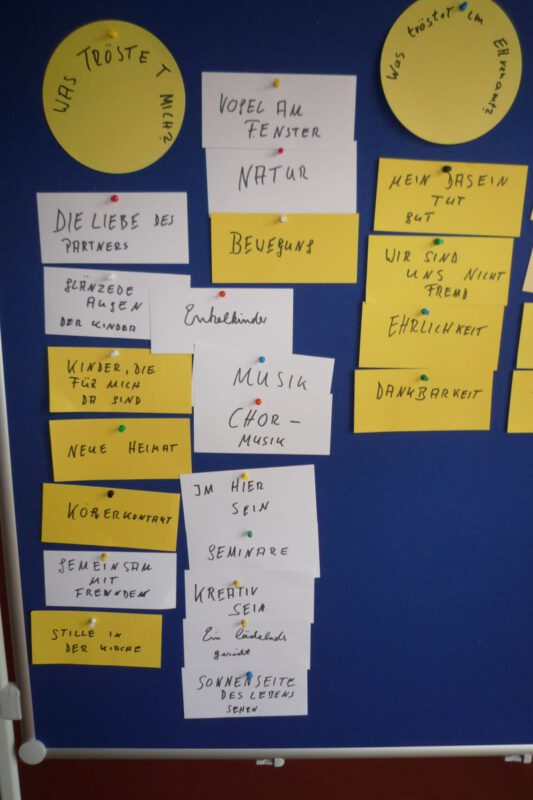 WAS TRÖSTET MICH?
DIE LIEBE DES
PARTNERS
GLÄNZEDE
AUGEN
DER KINDER
KINDER, DIE
FÜR MICH
DA SIND
NEUE HEIMAT
KÖRPERKONTAKT
GEMEINSAM
MIT
FREUNDEN
STILLE IN
DER KIRCHE
VOGEL AM
FENSTER
NATUR
BEWEGUNG
Enkelkinder
MUSIK
CHOR-
MUSIK
IM HIER
SEIN
SEMINARE
KREATIV
SEIN
Ein
SONNENSEITE
DES LEBENS
SEHEN
Was tröstet im Ehrenamt?
MEIN DASEIN
TUT
GUT
WIR SIND
UNS NICHT
FREMD
EHRLICHKEIT
DANKBARKEIT